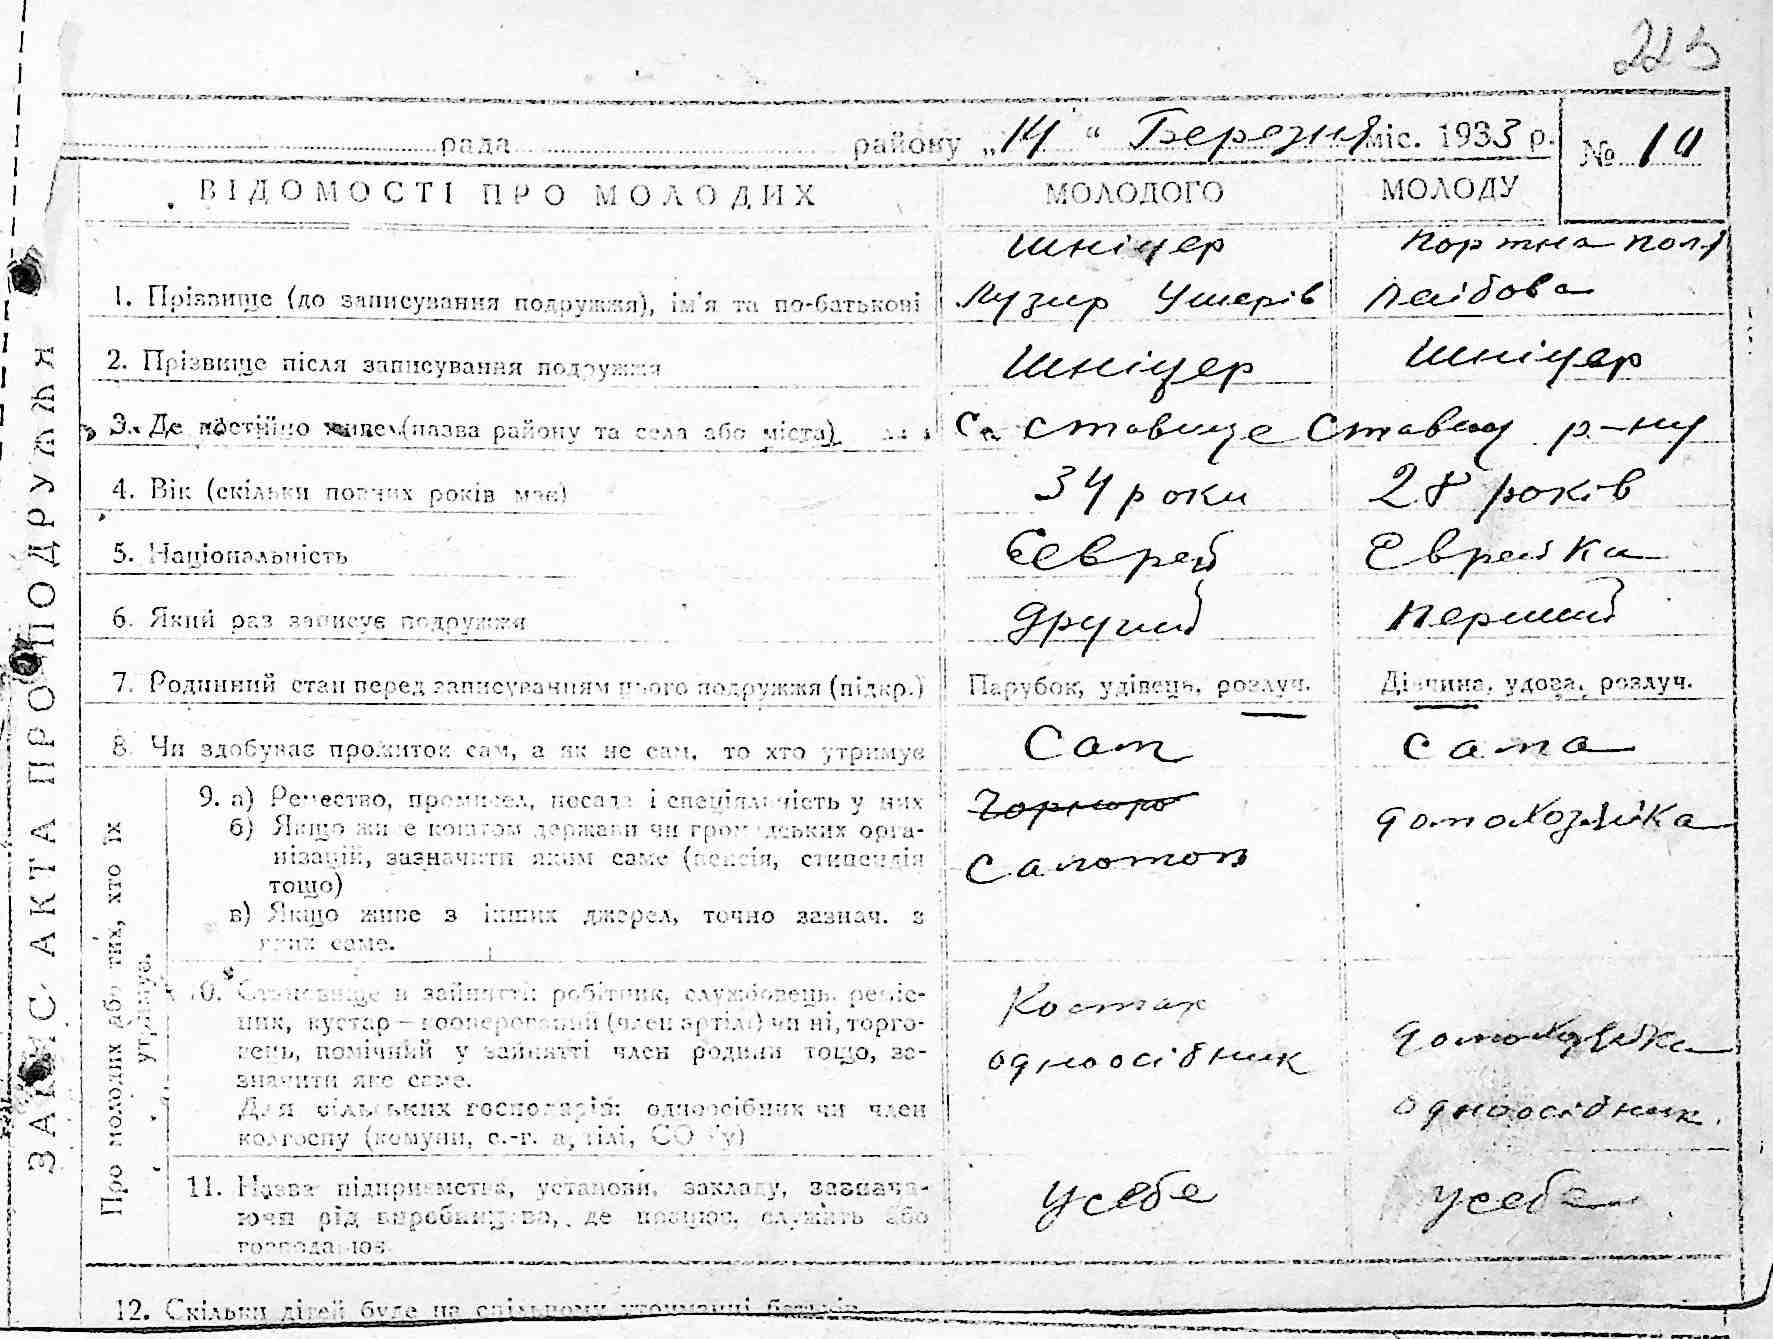 223
рада району „14“ Березня міс. 1933 р.
№ 10
ВІДОМОСТІ ПРО МОЛОДИХ МОЛОДОГО МОЛОДУ
Шніцер Портна Полі
1. Прізвище (до записування подружжя), ім'я та по-батькові Лузир Ушерів Лейбова
2. Прізвище після записування подружжя Шніцер Шніцер
3. Де постійно живе (назва району та села або міста) С. Ставище Ставищ р-ну
4. Вік (скільки повних років має) 34 роки 28 років
5. Національність Єврей Еврейка
6. Який раз записує подружжя другий перший
7. Родинний стан перед записуванням цього подружжя (підкр.) Парубок, удівець, розлуч. Дівчина, удова, розлуч.
8. Чи здобуває прожиток сам, а як не сам, то хто утримує Сам сама
9. а) Ремество, промисел, посада і спеціяльність у них
б) Якщо живе коштом держави чи громадських орга- домохозяйка
нізацій, зазначити яким саме (пенсія, стипендія Салотоп
тощо)
в) Якщо живе з інших джерел, точно зазнач. з
яких саме.
10. Становище в зайнятті: робітник, службовець, реміс-
ник, кустар — кооперований (член артілі) чи ні, торго- Костар
вець, помічний у зайнятті член родини тощо, за- одноосібник домохозяйка
значити яке саме.
Для сільських господарів: одноосібник чи член одноосібник.
колгоспу (комуни, с.-г. артілі, СОЗ'у)
11. Назва підприємства, установи, закладу, зазнача-
ючи рід виробництва, де працює, служить або усебе усебе
господарює
12. Скільки дітей буде на спільному утриманні батьків
ЗАПИС АКТА ПРО ПОДРУЖЖЯ
Про молодих або тих, хто їх
утримує.